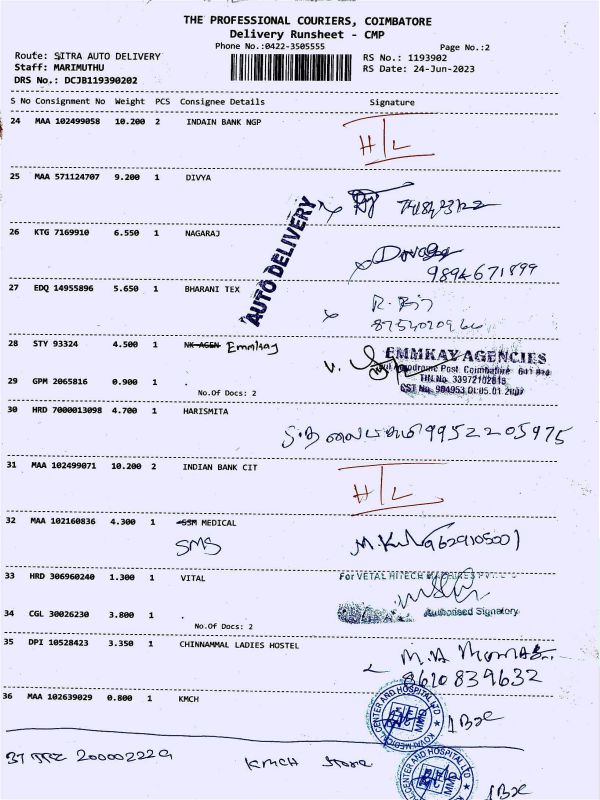 THE PROFESSIONAL COURIERS, COIMBATORE
Delivery Runsheet - CMP
Phone No.:0422-3505555
Page No.:2
Route: SITRA AUTO DELIVERY
RS No.: 1193902
Staff: MARIMUTHU
RS Date: 24-Jun-2023
DRS No.: DCJB119390202
S No Consignment No Weight PCS Consignee Details Signature
24 MAA 102499058 10.200 2 INDAIN BANK NGP
H/L
25 MAA 571124707 9.200 1 DIVYA
AUTO DELIVERY
26 KTG 7169910 6.550 1 NAGARAJ
9894671899
27 EDQ 14955896 5.650 1 BHARANI TEX
28 STY 93324 4.500 1 NK AGEN Emmkay
EMMKAY AGENCIES
Aerodrome Post Coimbatore
TIN No. 33972102819
CST No. 984953 Dt.05.01.2007
29 GPM 2065816 0.900 1
No.Of Docs: 2
30 HRD 7000013098 4.700 1 HARISMITA
9952205975
31 MAA 102499071 10.200 2 INDIAN BANK CIT
H/L
32 MAA 102160836 4.300 1 SSM MEDICAL
SMS
9629105001
33 HRD 306960240 1.300 1 VITAL
For VETAL HITECH MACHINES PVT. LTD
Authorised Signatory
34 CGL 30026230 3.800 1
No.Of Docs: 2
35 DPI 10528423 3.350 1 CHINNAMMAL LADIES HOSTEL
8610839632
36 MAA 102639029 0.800 1 KMCH
KOVAI MEDICAL CENTER AND HOSPITAL LTD
1 Box
200002229
KMCH Store
CENTER AND HOSPITAL LTD
1 Box